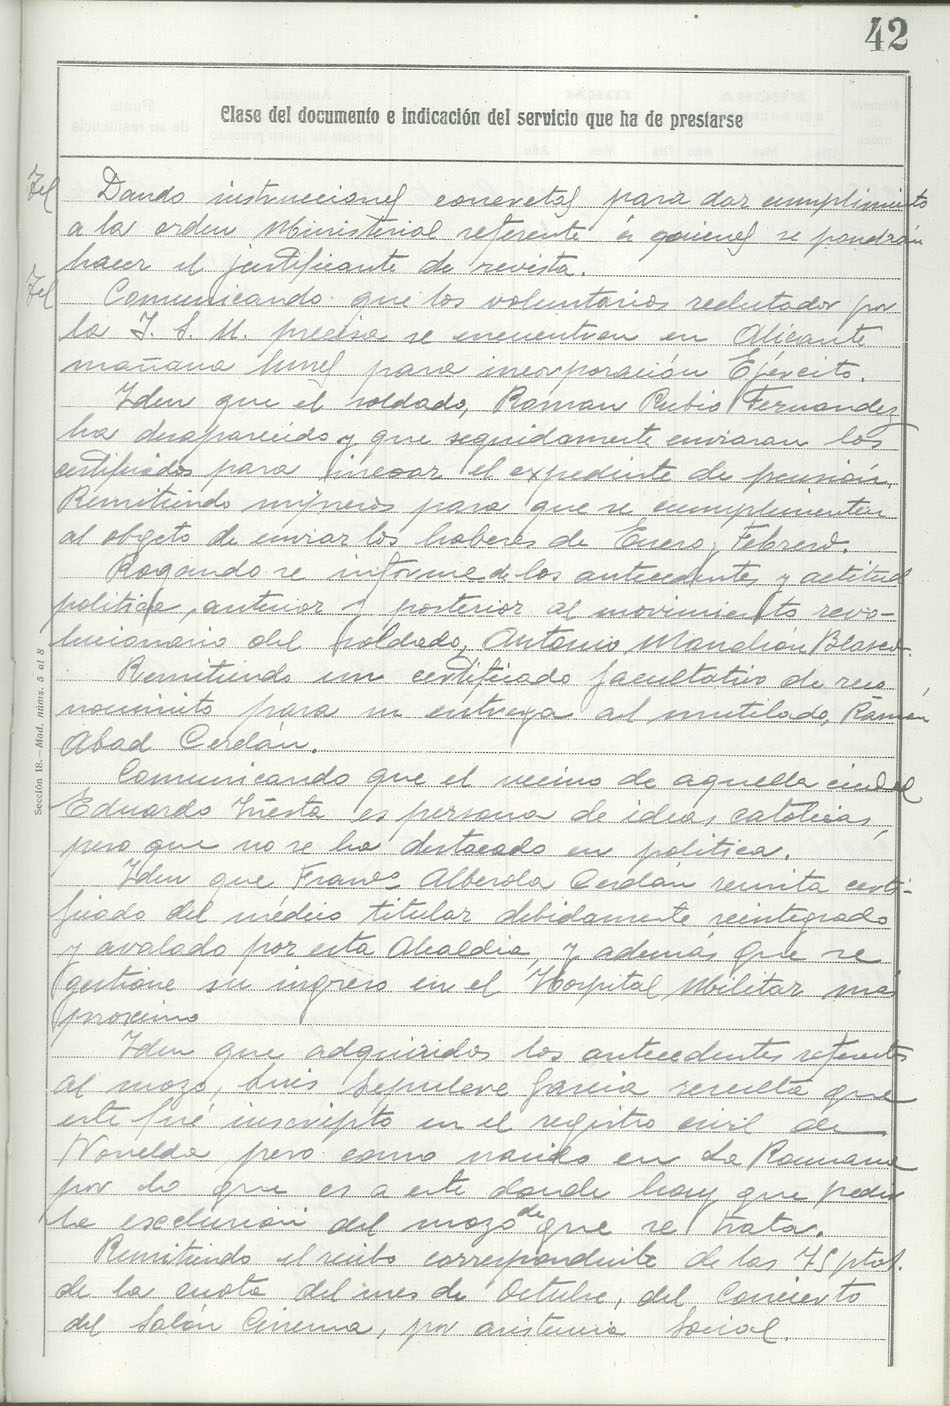 42
Clase del documento e indicación del servicio que ha de prestarse
Tel Dando instrucciones concretas para dar cumplimiento
a la orden Ministerial referente a quienes se pondrán
hacer el justificante de revista.
Tel Comunicando que los voluntarios reclutados por
la J. S. M. precisa se encuentren en Alicante
mañana lunes para incorporación Ejército.
Iden que el soldado, Raman Rubio Fernandez
ha desaparecido y que seguidamente enviaran los
certificados para incoar el expediente de pensión.
Remitiendo impresos para que se cumplimenten
al objeto de enviar los haberes de Enero y Febrero.
Rogando se informe de los antecedentes y actitud
politica, anterior y posterior al movimiento revo-
lucionario del soldado, Antonio Manchón Blasco.
Remitiendo un certificado facultativo de reco
nocimiento para su entrega al mutilado, Ramón
Abad Cerdán.
Comunicando que el vecino de aquella ciudad
Eduardo Iñesta es persona de ideas catolicas,
pero que no se ha destacado en politica.
Iden que Franco Alberola Cerdán remita certi-
ficado del médico titular debidamente reintegrado
y avalado por esta Alcaldia, y además que se
gestione su ingreso en el Hospital Militar mas
proximo
Iden que adquiridos los antecedentes referentes
al mozo, Luis Sepulcre Garcia resulta que
este fué inscripto en el registro civil de
Novelda pero como nacido en La Romana
por lo que es a este donde hay que pedir
la exclusión del mozo de que se trata.
Remitiendo el recibo correspondiente de las 75 ptas.
de la cuota del mes de Octubre, del Concierto
del Salón Cinema, por asistencia Social.
Sección 18.—Mod. núms. 5 al 8